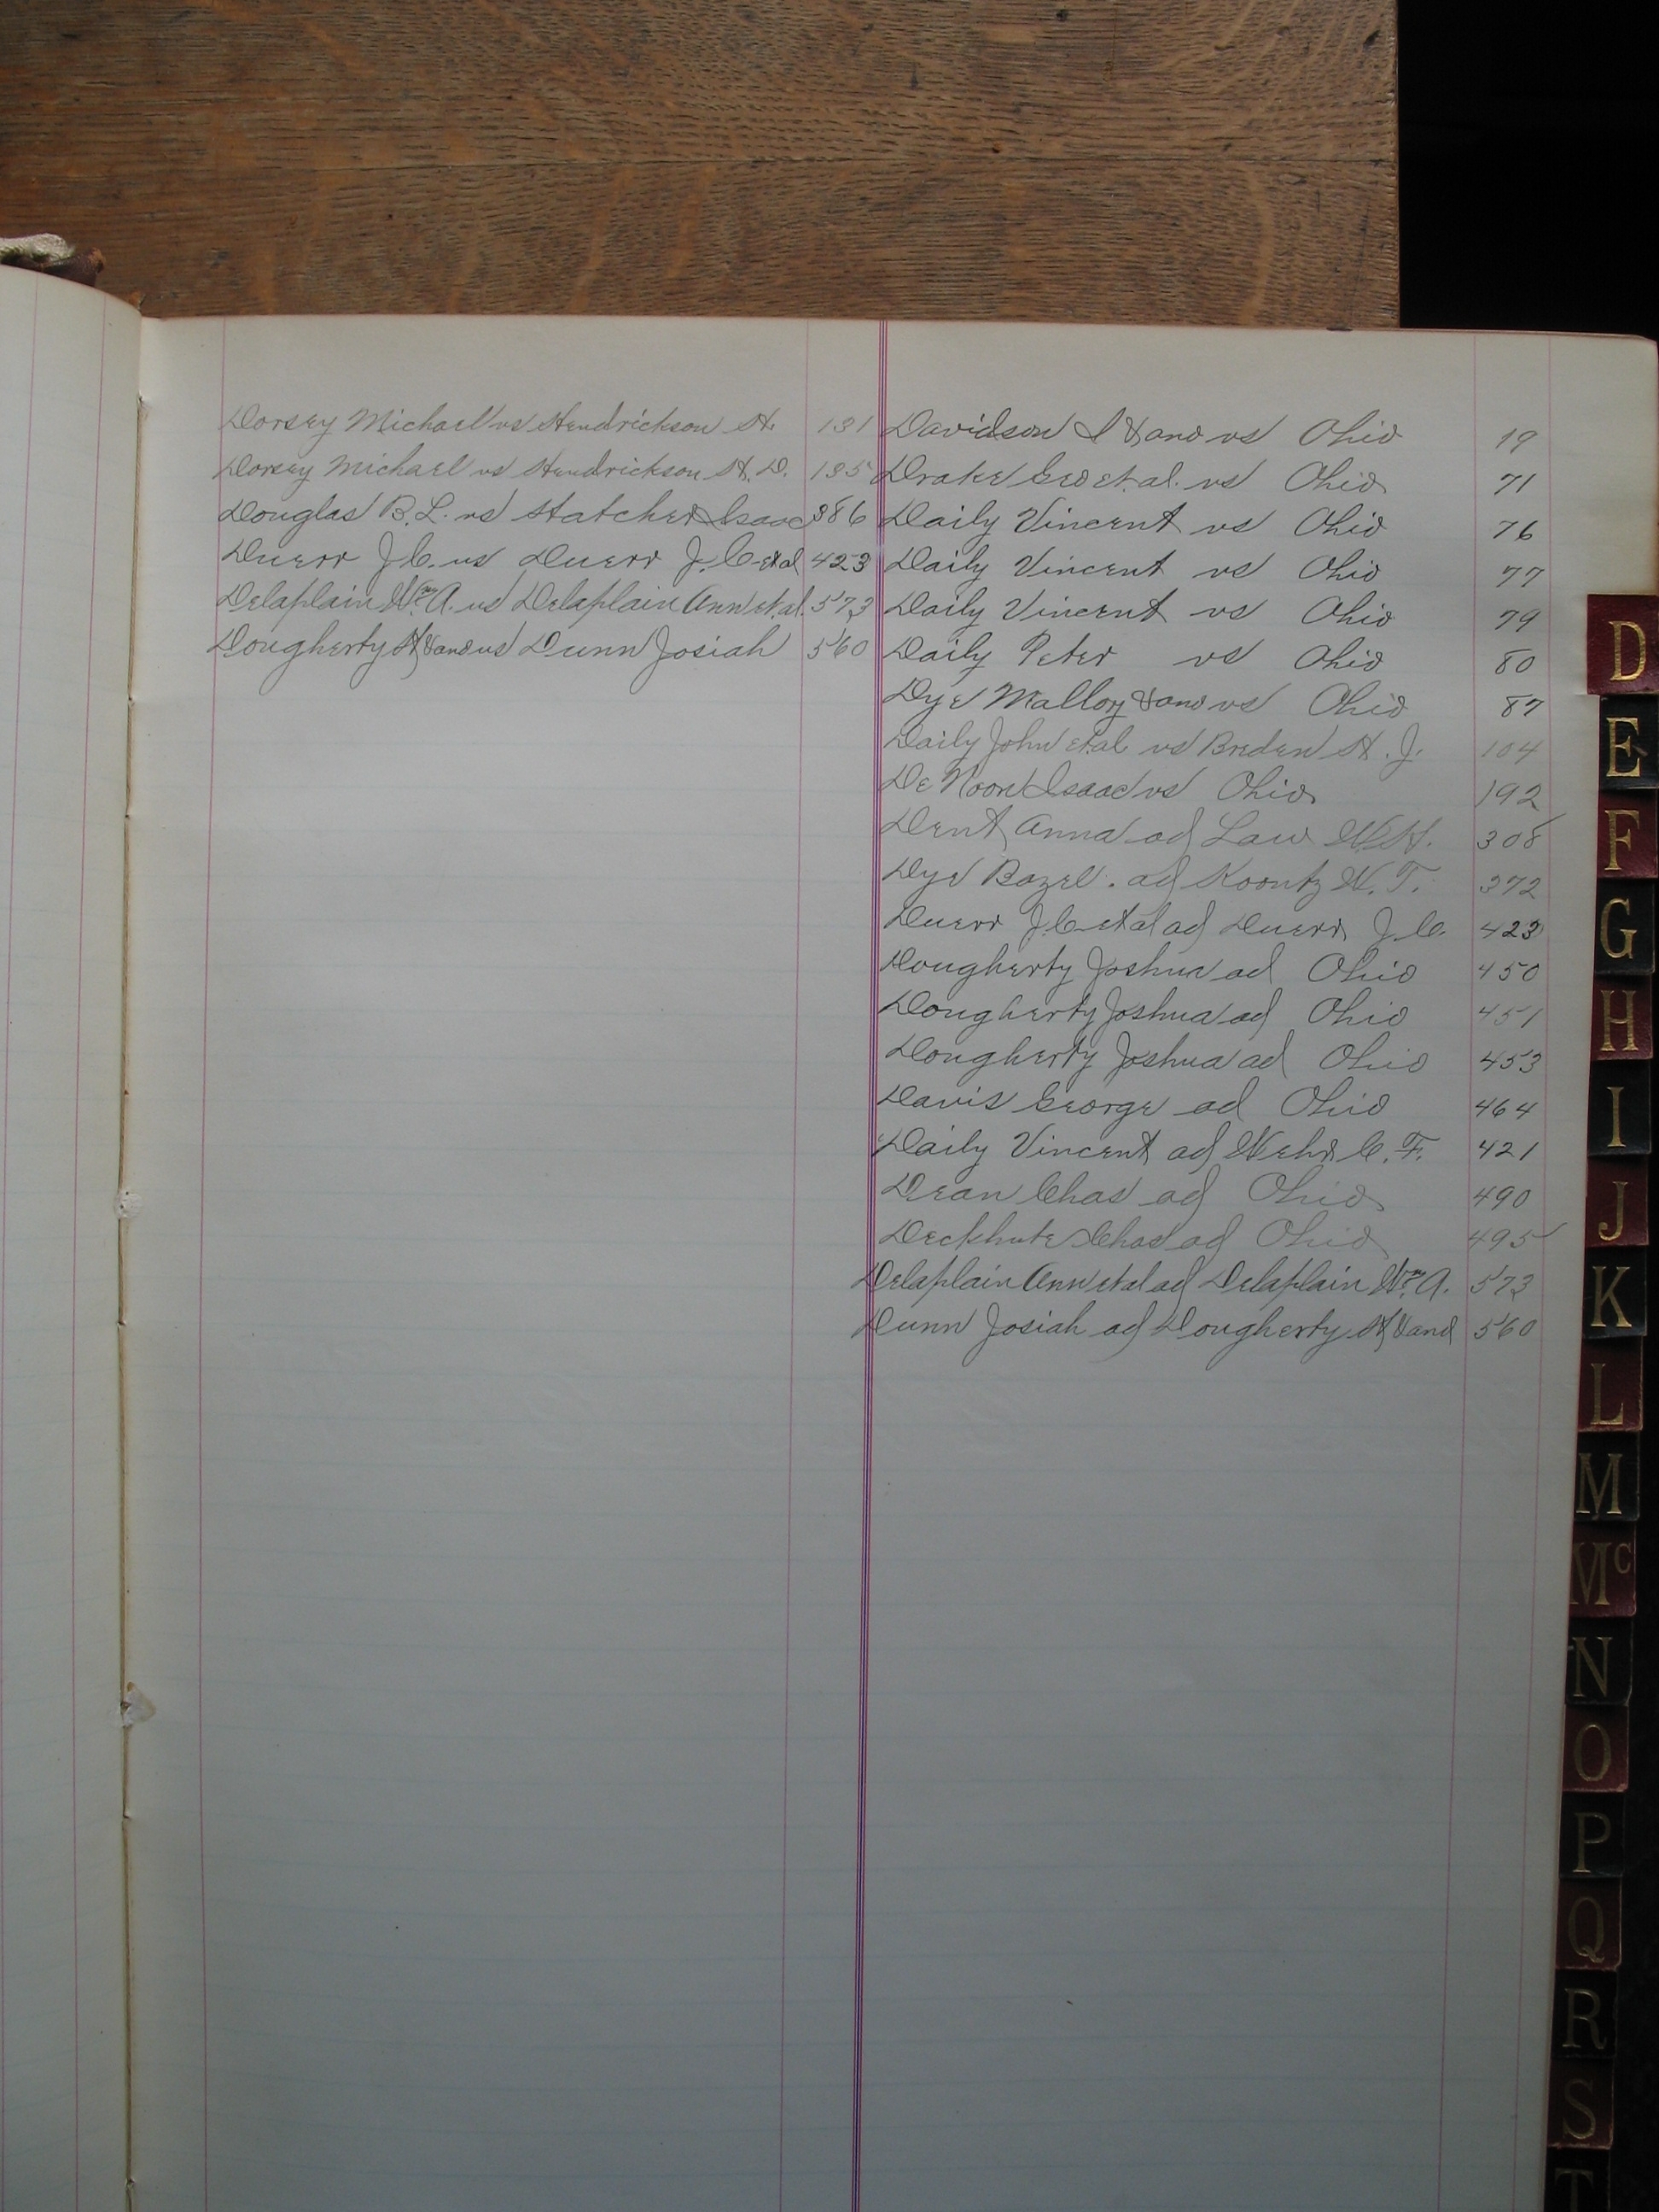 Dorsey Michael vs Hendrickson H. 131
Dorsey Michael vs Hendrickson H. D. 135
Douglas B. L. vs Hatcher Isaac 386
Duerr J. C. vs Duerr J. C. et al 423
Delaplain Wm A. vs Delaplain Ann et al. 573
Dougherty H & ano vs Dunn Josiah 560
Davidson I & ano vs Ohio 19
Drake Geo et. al. vs Ohio 71
Daily Vincent vs Ohio 76
Daily Vincent vs Ohio 77
Daily Vincent vs Ohio 79
Daily Peter vs Ohio 80
Dye Mallory & ano vs Ohio 87
Daily John et al vs Breden H. J. 104
De Noon Isaac vs Ohio 192
Dent Anna ad Law W. H. 308
Dye Bazel. ad Koontz W. T. 372
Duerr J. C. et al ad Duerr J. C. 423
Dougherty Joshua ad Ohio 450
Dougherty Joshua ad Ohio 451
Dougherty Joshua ad Ohio 453
Davis George ad Ohio 464
Daily Vincent ad Wehr C. F. 421
Dean Chas ad Ohio 490
Deckhute Chas ad Ohio 495
Delaplain Ann et al ad Delaplain Wm A. 573
Dunn Josiah ad Dougherty H & ano 560
D
E
F
G
H
I
J
K
L
M
Mc
N
O
P
Q
R
S
T